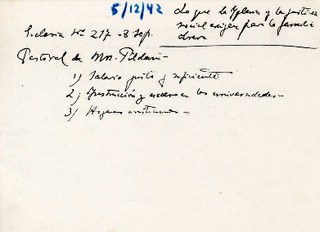 5/12/42
Lo que la Iglesia y la justicia
social exigen para la familia
obrera
Ecclesia Nº 217 - 8 Sep.
Pastoral de Mons. Pildain -
1) Salario justo y suficiente
2) Instrucción y acceso en las universidades -
3) Hogares cristianos -